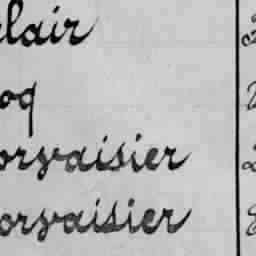 clair
oq
orvaisier
orvaisier